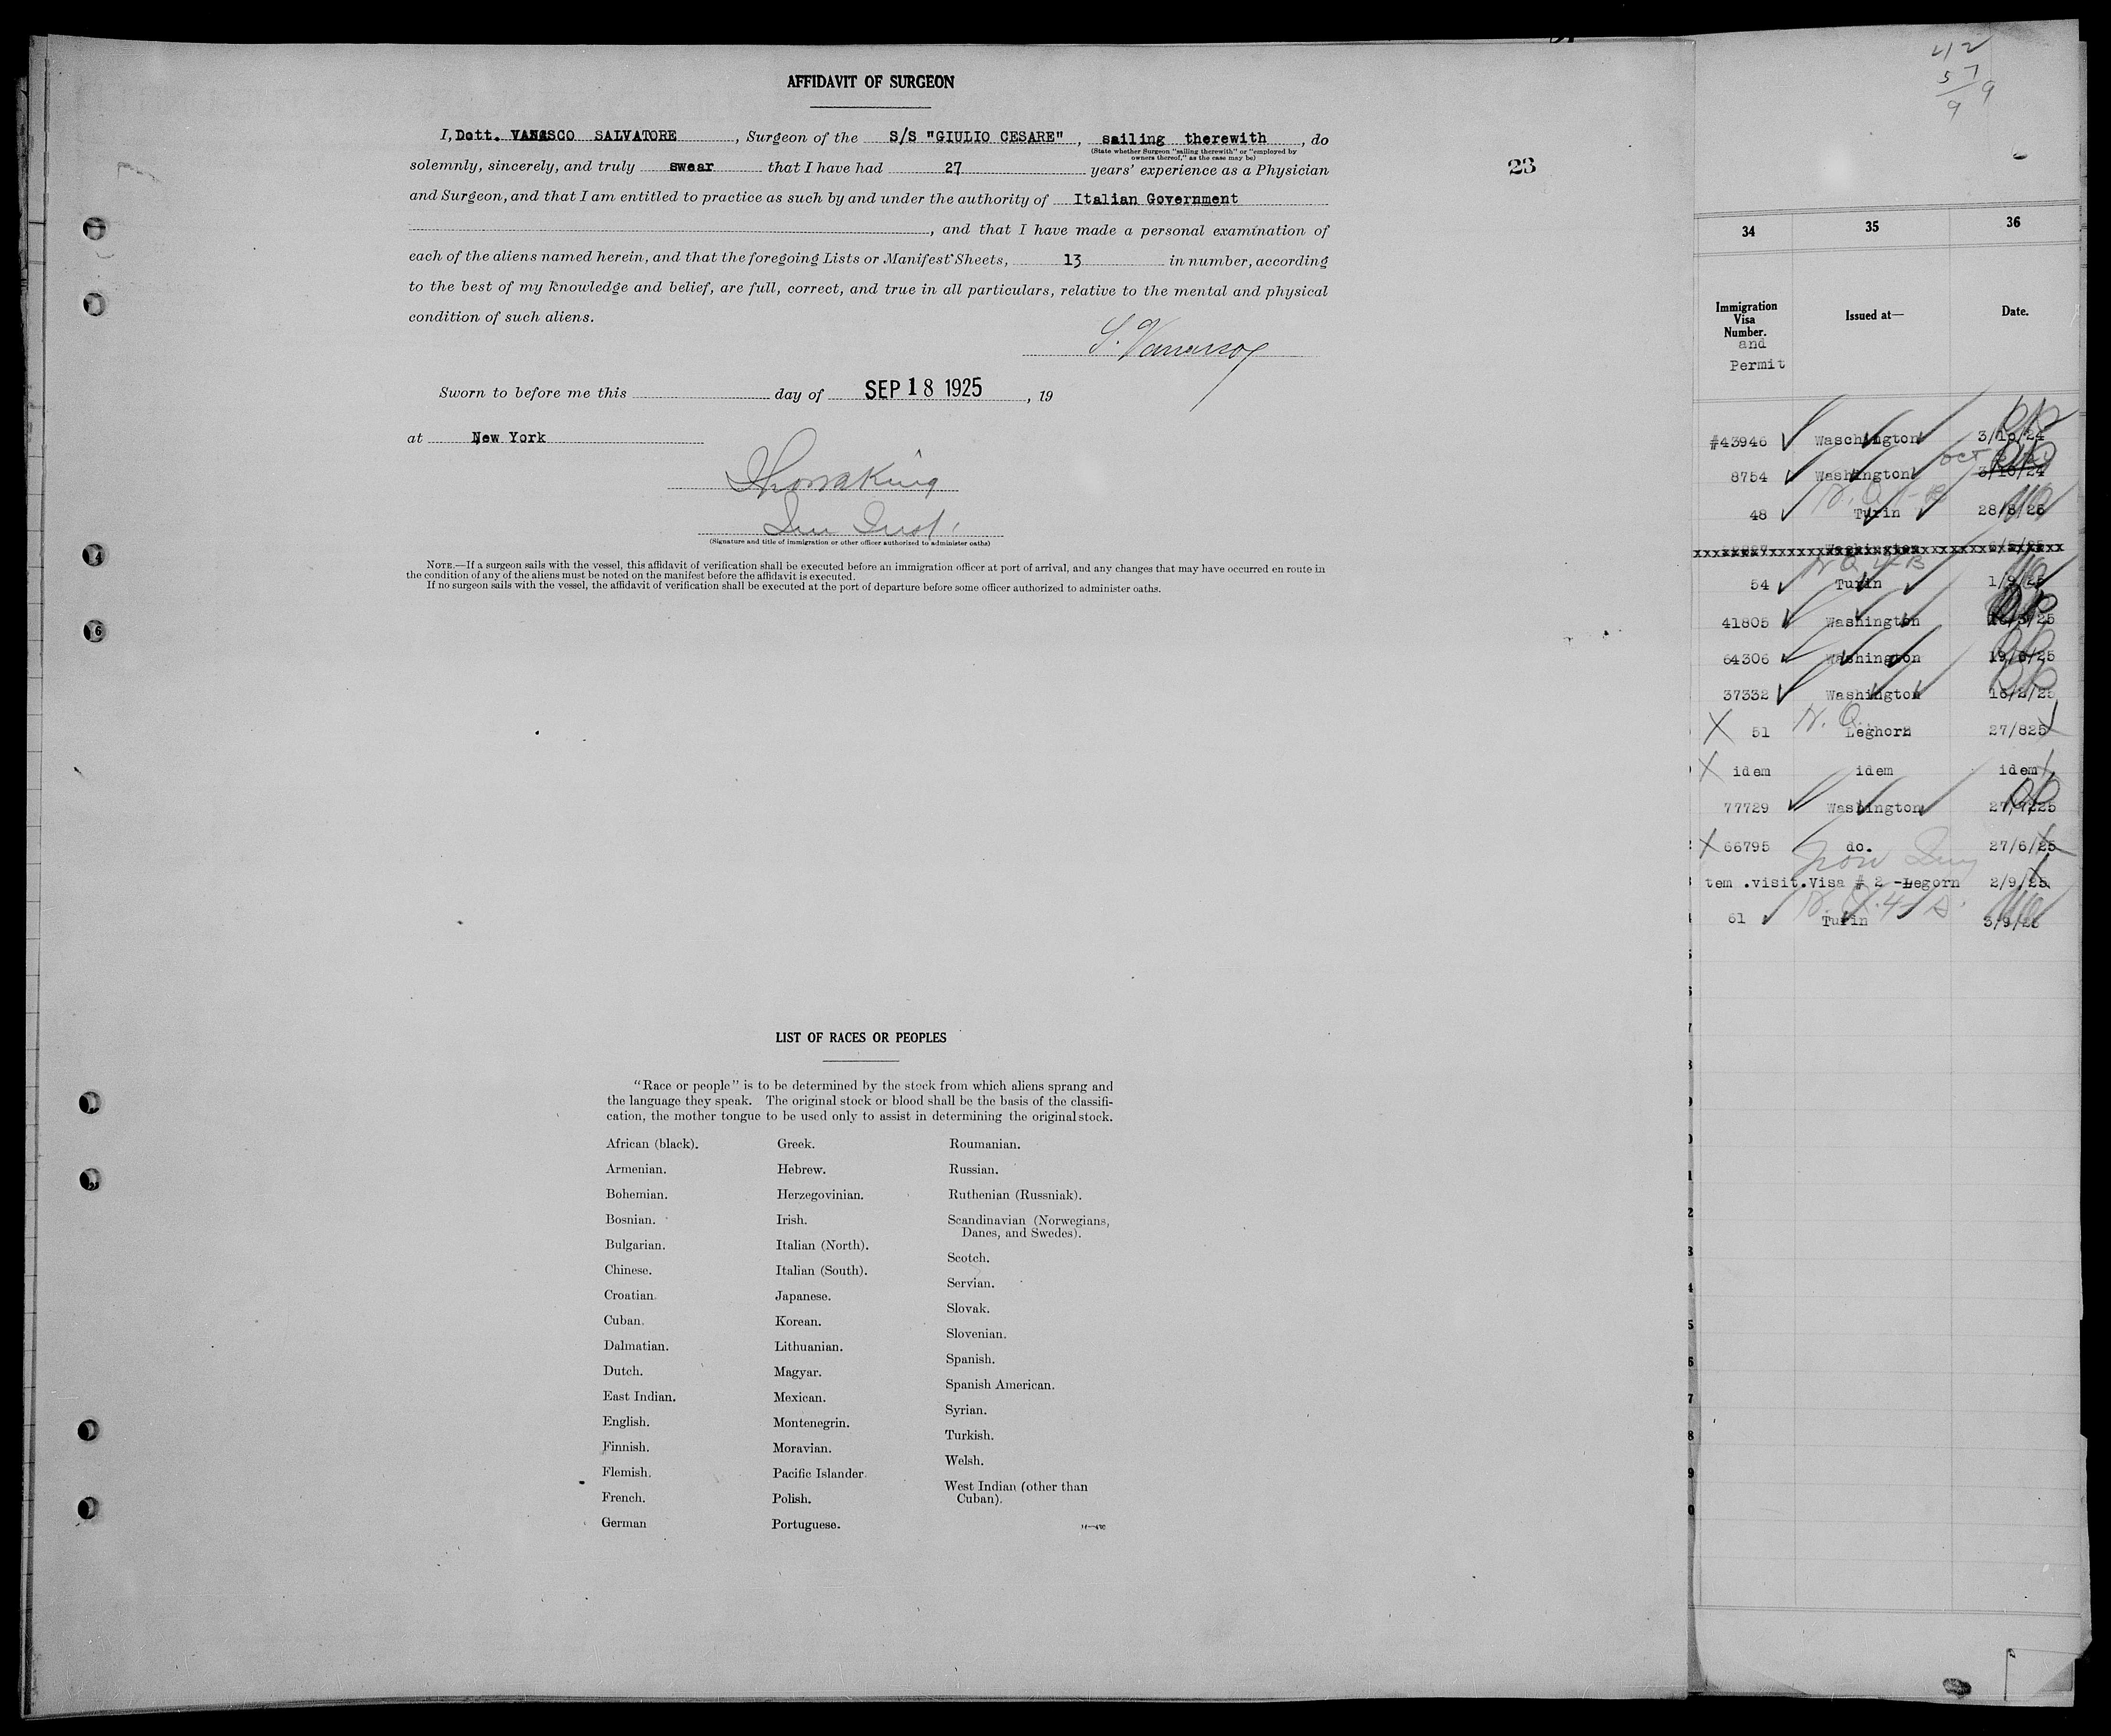 AFFIDAVIT OF SURGEON
I, Dott. VANASCO SALVATORE, Surgeon of the S/S "GIULIO CESARE", sailing therewith, do
(State whether Surgeon "sailing therewith" or "employed by
owners thereof," as the case may be)
solemnly, sincerely, and truly swear that I have had 27 years' experience as a Physician
and Surgeon, and that I am entitled to practice as such by and under the authority of Italian Government
, and that I have made a personal examination of
each of the aliens named herein, and that the foregoing Lists or Manifest Sheets, 13 in number, according
to the best of my knowledge and belief, are full, correct, and true in all particulars, relative to the mental and physical
condition of such aliens.
Sworn to before me this day of SEP 18 1925, 19
at New York
(Signature and title of immigration or other officer authorized to administer oaths)
NOTE.—If a surgeon sails with the vessel, this affidavit of verification shall be executed before an immigration officer at port of arrival, and any changes that may have occurred en route in
the condition of any of the aliens must be noted on the manifest before the affidavit is executed.
If no surgeon sails with the vessel, the affidavit of verification shall be executed at the port of departure before some officer authorized to administer oaths.
LIST OF RACES OR PEOPLES
"Race or people" is to be determined by the stock from which aliens sprang and
the language they speak. The original stock or blood shall be the basis of the classifi-
cation, the mother tongue to be used only to assist in determining the original stock.
African (black).
Armenian.
Bohemian.
Bosnian.
Bulgarian.
Chinese.
Croatian.
Cuban.
Dalmatian.
Dutch.
East Indian.
English.
Finnish.
Flemish.
French.
German
Greek.
Hebrew.
Herzegovinian.
Irish.
Italian (North).
Italian (South).
Japanese.
Korean.
Lithuanian.
Magyar.
Mexican.
Montenegrin.
Moravian.
Pacific Islander.
Polish.
Portuguese.
Roumanian.
Russian.
Ruthenian (Russniak).
Scandinavian (Norwegians,
Danes, and Swedes).
Scotch.
Servian.
Slovak.
Slovenian.
Spanish.
Spanish American.
Syrian.
Turkish.
Welsh.
West Indian (other than
Cuban).
23
42
57
34 35 36
Immigration
Visa
Number.
and
Permit
Issued at—
Date.
#43946 Waschington 3/10/24
8754 Washington 3/10/24
48 Turin 28/8/25
54 Turin 1/9/25
41805 Washington /25
64306 Washington 19/6/25
37332 Washington 16/2/25
51 Leghorn 27/825
idem idem idem
77729 Washington 27/7/25
66795 do. 27/6/25
tem .visit.Visa # 2 -Legorn 2/9/25
61 Turin 3/9/25